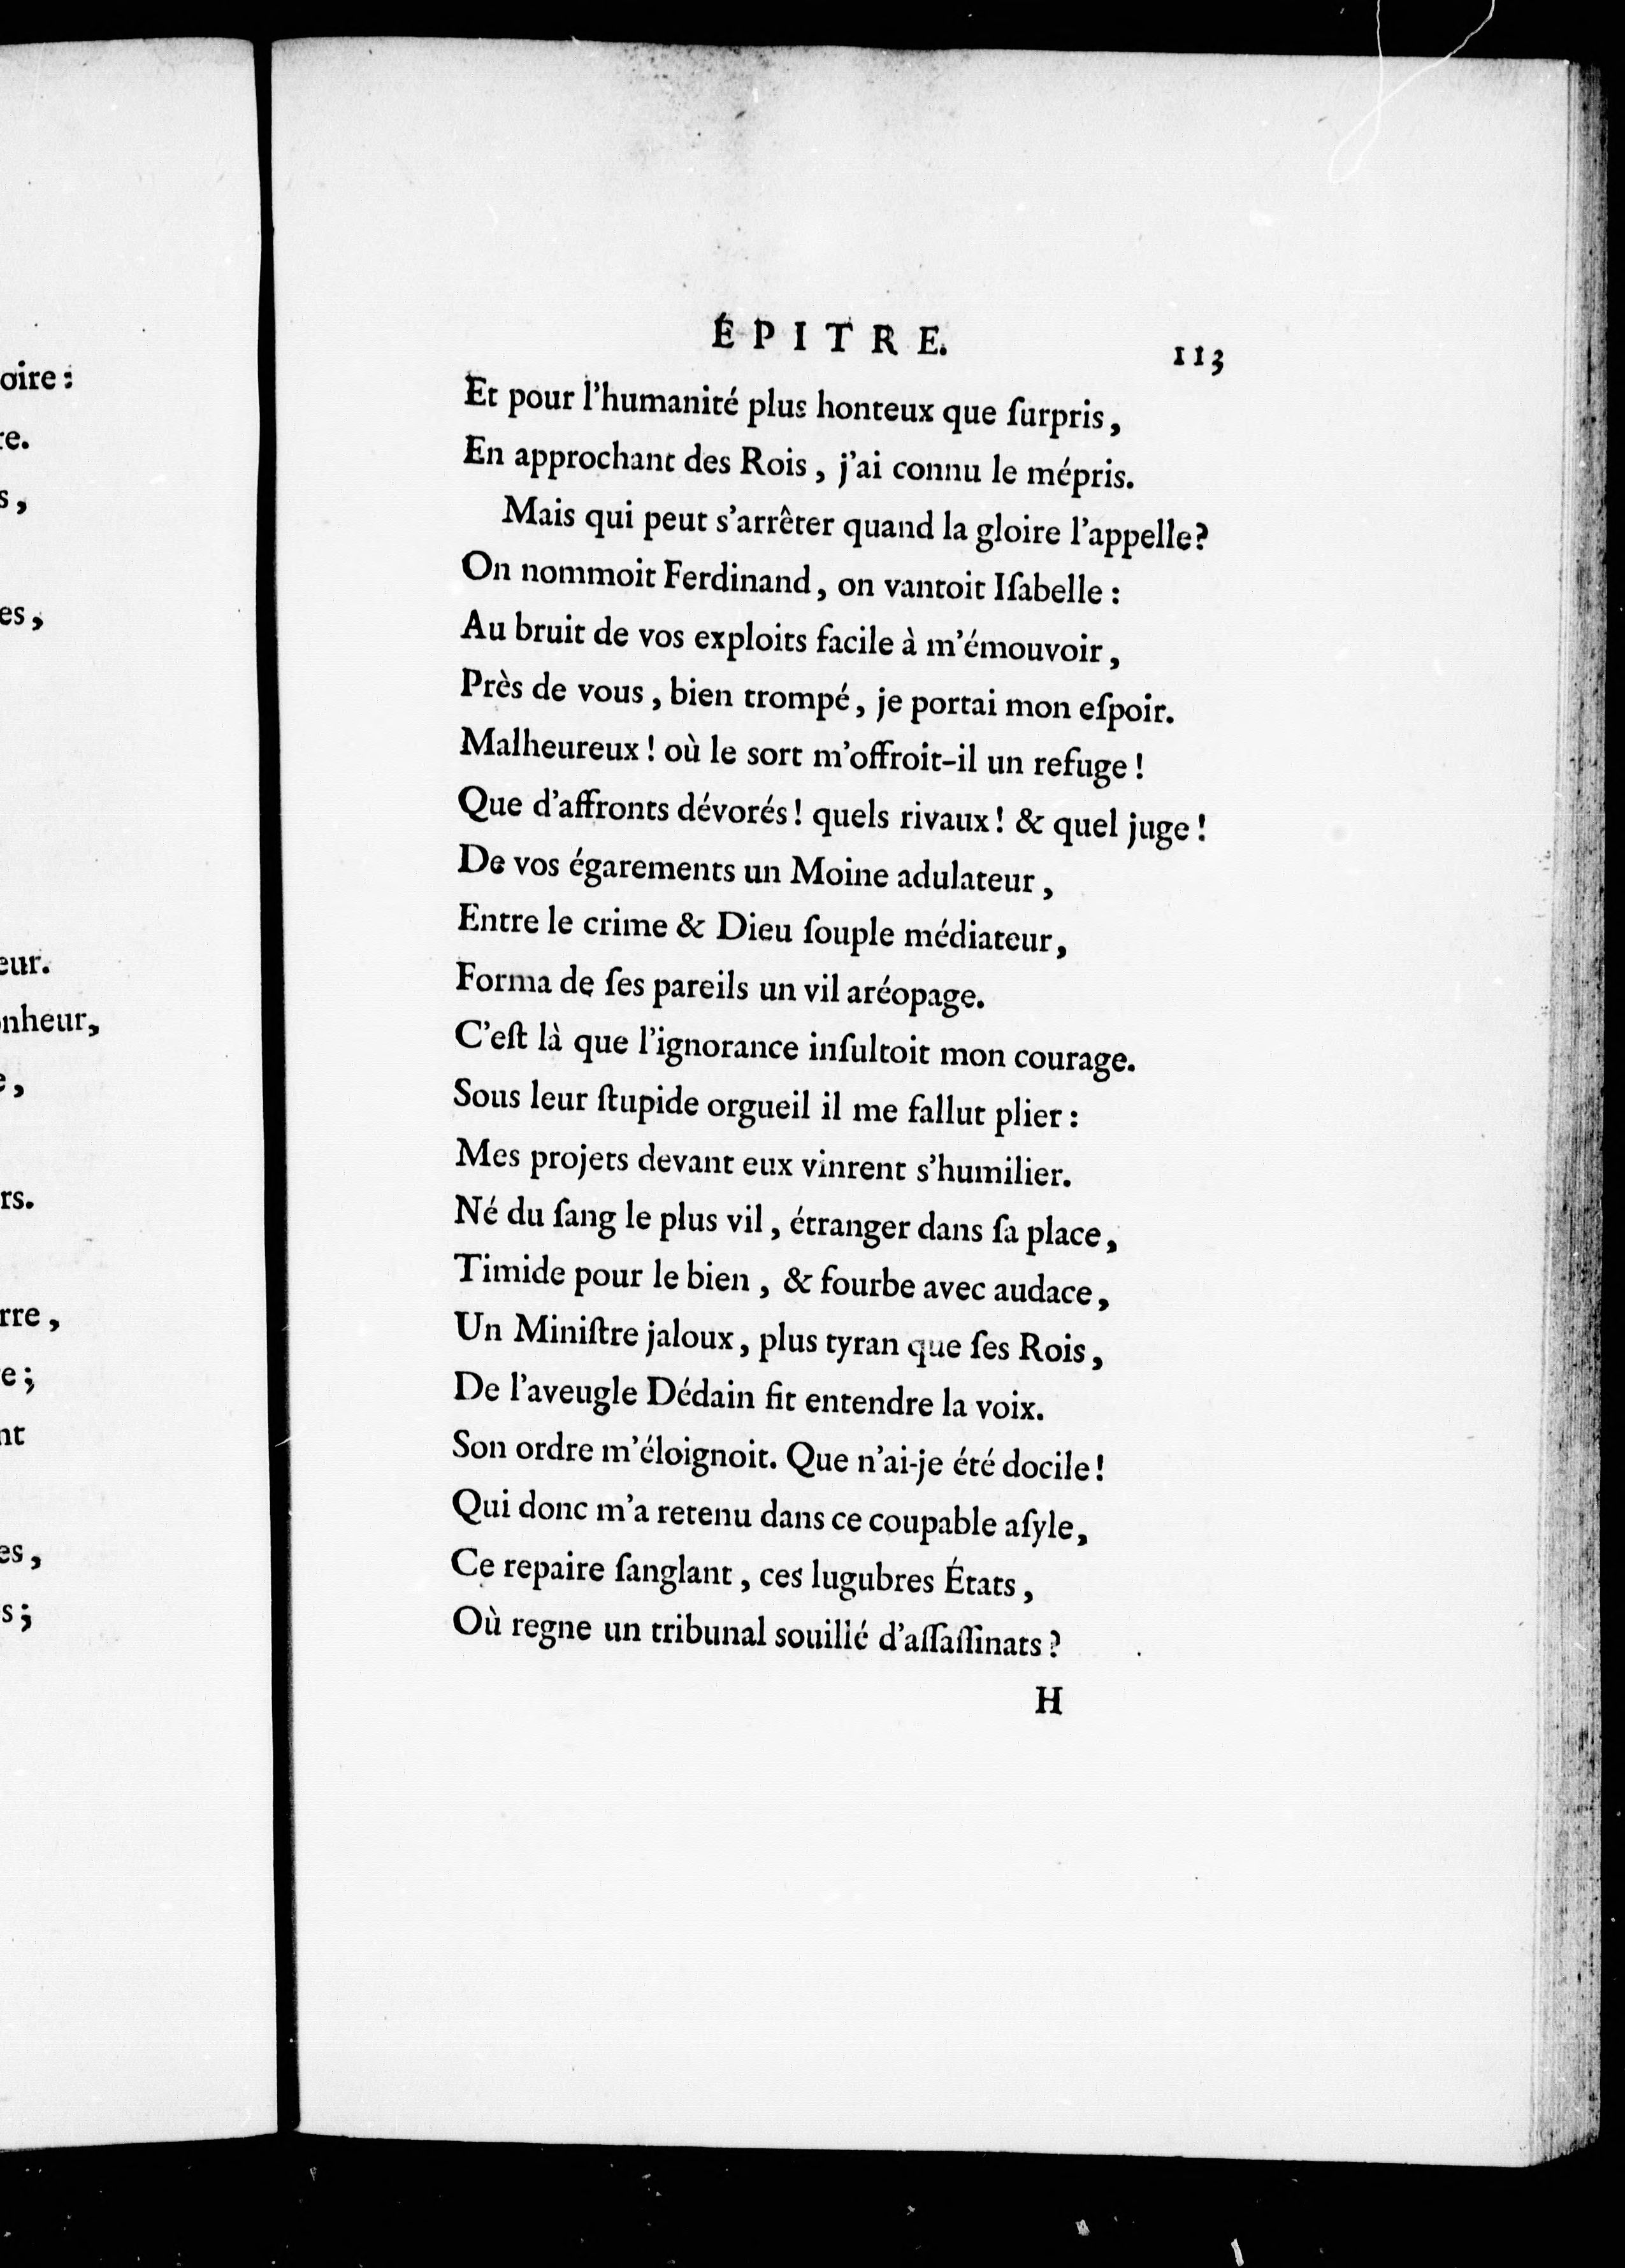 oire :
re.
s,
es,
eur.
onheur,
e,
rs.
rre,
e ;
nt
es,
s ;
ÉPITRE. 113
Et pour l'humanité plus honteux que ſurpris,
En approchant des Rois, j'ai connu le mépris.
Mais qui peut s'arrêter quand la gloire l'appelle?
On nommoit Ferdinand, on vantoit Iſabelle :
Au bruit de vos exploits facile à m'émouvoir,
Près de vous, bien trompé, je portai mon eſpoir.
Malheureux ! où le sort m'offroit-il un refuge !
Que d'affronts dévorés! quels rivaux! & quel juge !
De vos égarements un Moine adulateur,
Entre le crime & Dieu ſouple médiateur,
Forma de ſes pareils un vil aréopage.
C'eſt là que l'ignorance inſultoit mon courage.
Sous leur ſtupide orgueil il me fallut plier :
Mes projets devant eux vinrent s'humilier.
Né du ſang le plus vil, étranger dans ſa place,
Timide pour le bien, & fourbe avec audace,
Un Miniſtre jaloux, plus tyran que ſes Rois,
De l'aveugle Dédain fit entendre la voix.
Son ordre m'éloignoit. Que n'ai-je été docile !
Qui donc m'a retenu dans ce coupable aſyle,
Ce repaire ſanglant, ces lugubres États,
Où regne un tribunal souillé d'aſſaſſinats ?
H